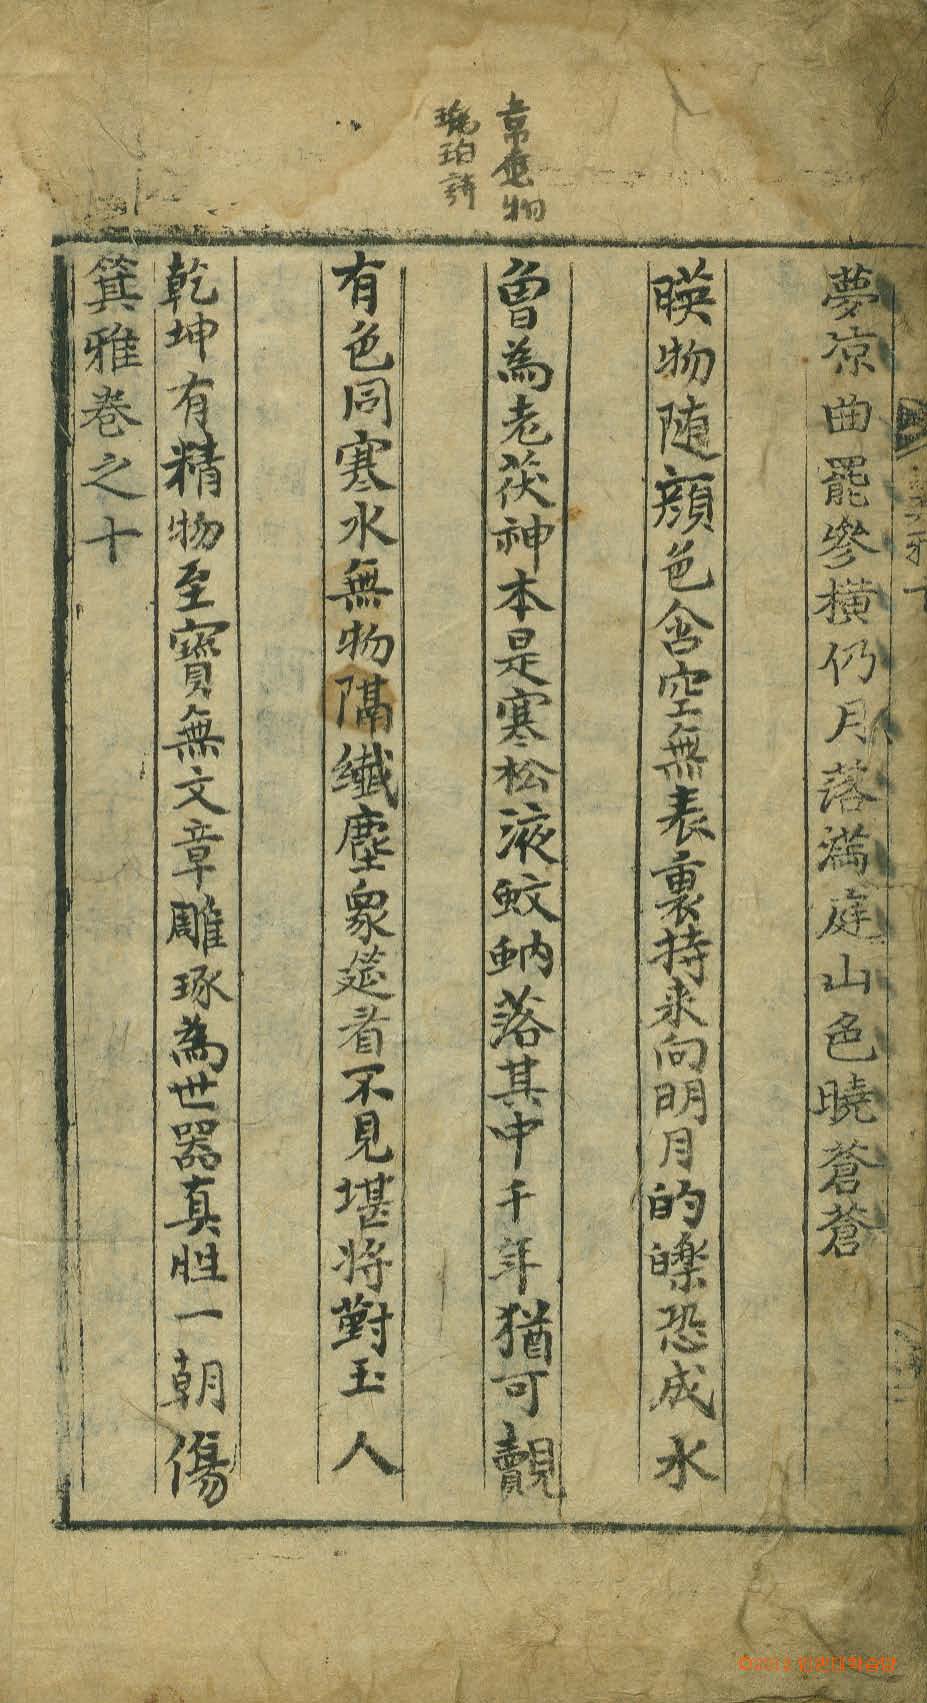 韋應物
琥珀詩
夢凉曲罷參横仍月落滿庭山色曉蒼蒼
暎物随顔色含空無表裏持来向明月的皪恐成水
曽為老茯神本是寒松液蚊蚋落其中千年猶可覿
有色同寒水無物隔纖塵象筵看不見堪将對玉人
乾坤有精物至寳無文章雕琢為世器真性一朝傷
箕雅巻之十